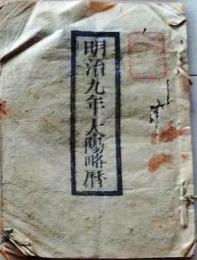 明治九年太陽略暦